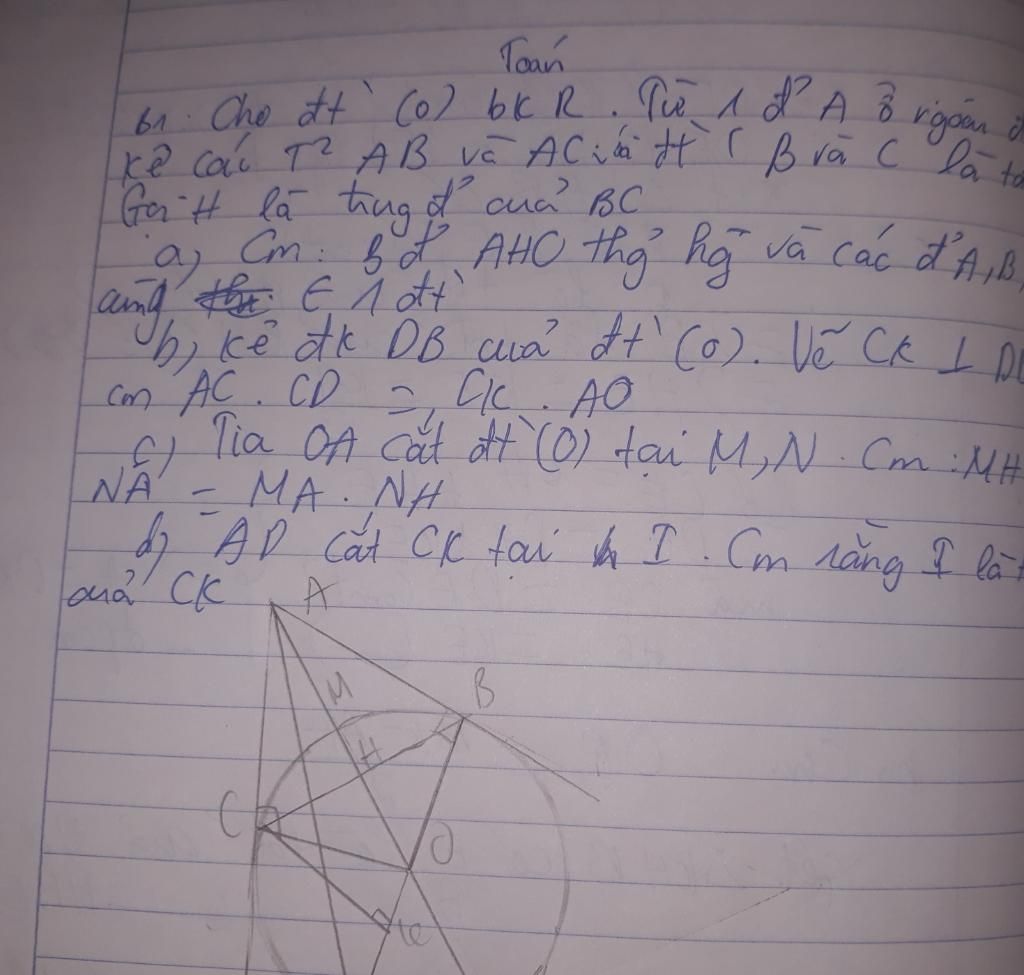 Toán
B1. Cho đt` (O) bk R. Từ 1 đ' A ở ngoài
kẻ các T² AB và AC với đt` ( B và C là
Gọi H là trug đ' cuả BC
a, Cm: 3 đ' AHO thg' hg và các đ' A, B,
cùng ∈ 1 đt`
b, kẻ đk DB cuả đt` (O). Vẽ CK ⊥
cm AC . CD = CK . AO
c) Tia OA cắt đt` (O) tại M, N. Cm: MH
NA = MA . NH
d, AD cắt CK tại I. Cm rằng I là
cuả CK
A
M
B
H
C
O
K